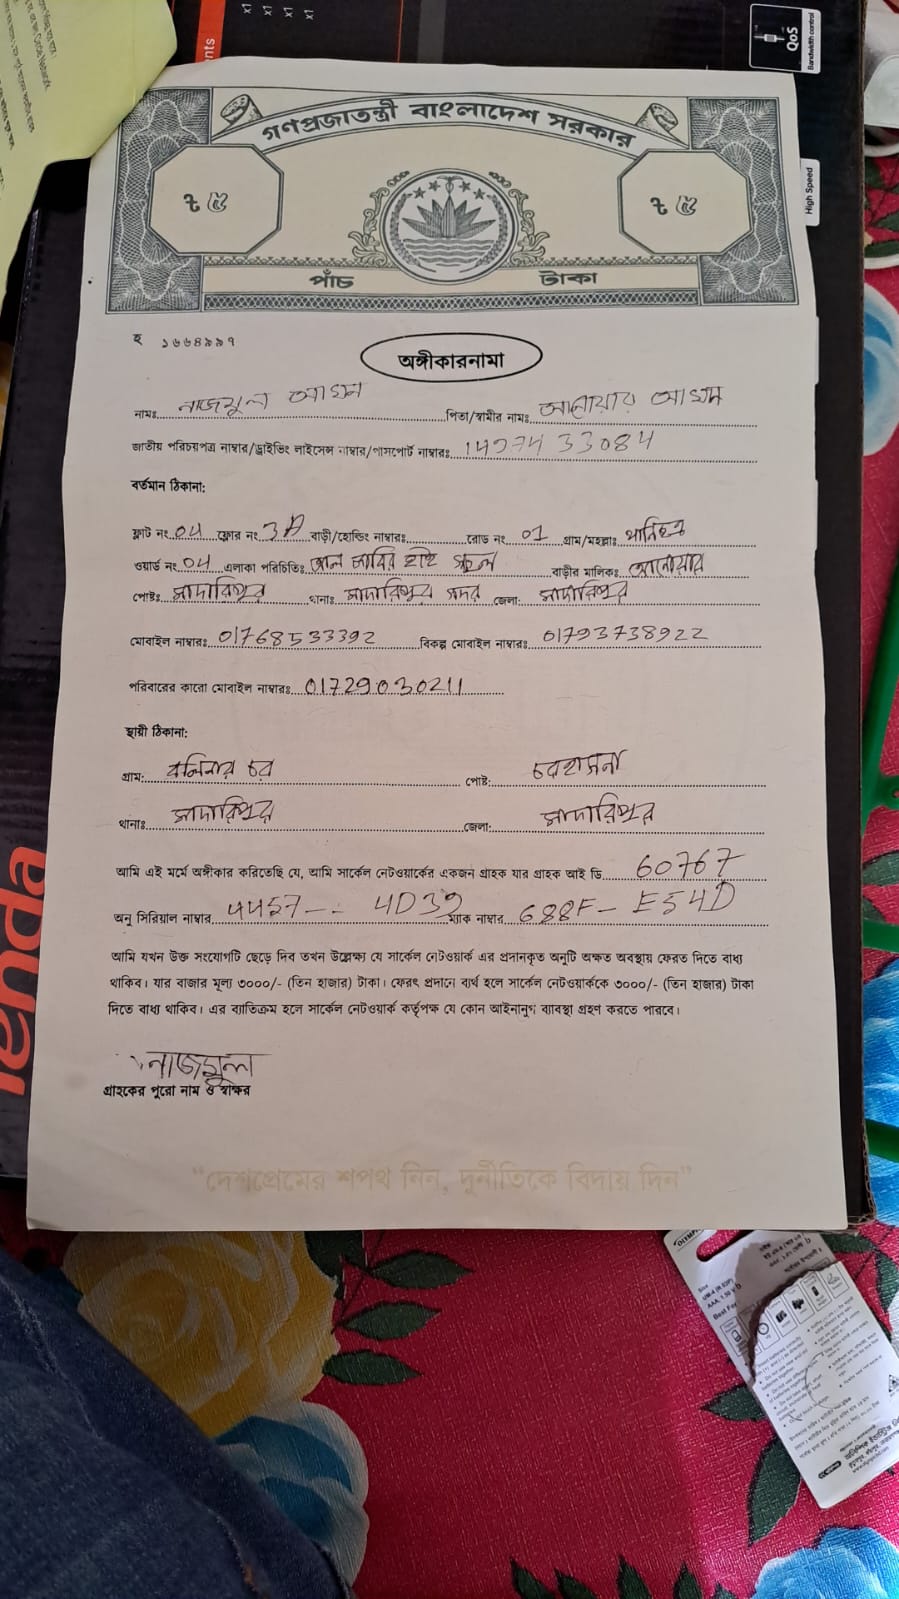 QoS
Bandwidth control
High Speed
x1
x1
x1
x1
nts
গণপ্রজাতন্ত্রী বাংলাদেশ সরকার
৳ ৫
৳ ৫
পাঁচ টাকা
হ ১৬৬৪৯৯৭
অঙ্গীকারনামা
নামঃ নাজমুল পিতা/স্বামীর নামঃ আনোয়ার
জাতীয় পরিচয়পত্র নাম্বার/ড্রাইভিং লাইসেন্স নাম্বার/পাসপোর্ট নাম্বারঃ
বর্তমান ঠিকানা:
ফ্লাট নং 04 ফ্লোর নং 3A বাড়ী/হোল্ডিং নাম্বারঃ রোড নং 01 গ্রাম/মহল্লাঃ
ওয়ার্ড নং 04 এলাকা পরিচিতিঃ বাড়ীর মালিকঃ আনোয়ার
পোষ্টঃ মাদারিপুর থানাঃ মাদারিপুর সদর জেলা: মাদারিপুর
মোবাইল নাম্বারঃ 01768533392 বিকল্প মোবাইল নাম্বারঃ 01793738922
পরিবারের কারো মোবাইল নাম্বারঃ 01729030211
স্থায়ী ঠিকানা:
গ্রাম: চর পোষ্ট:
থানাঃ মাদারিপুর জেলা: মাদারিপুর
আমি এই মর্মে অঙ্গীকার করিতেছি যে, আমি সার্কেল নেটওয়ার্কের একজন গ্রাহক যার গ্রাহক আই ডি 60767
অনু সিরিয়াল নাম্বার 4D39 ম্যাক নাম্বার 688F - E54D
আমি যখন উক্ত সংযোগটি ছেড়ে দিব তখন উল্লেক্ষ্য যে সার্কেল নেটওয়ার্ক এর প্রদানকৃত অনুটি অক্ষত অবস্থায় ফেরত দিতে বাধ্য
থাকিব। যার বাজার মূল্য ৩০০০/- (তিন হাজার) টাকা। ফেরৎ প্রদানে ব্যর্থ হলে সার্কেল নেটওয়ার্ককে ৩০০০/- (তিন হাজার) টাকা
দিতে বাধ্য থাকিব। এর ব্যাতিক্রম হলে সার্কেল নেটওয়ার্ক কর্তৃপক্ষ যে কোন আইনানুগ ব্যাবস্থা গ্রহণ করতে পারবে।
নাজমুল
গ্রাহকের পুরো নাম ও স্বাক্ষর
“দেশপ্রেমের শপথ নিন, দুর্নীতিকে বিদায় দিন”
Tenda